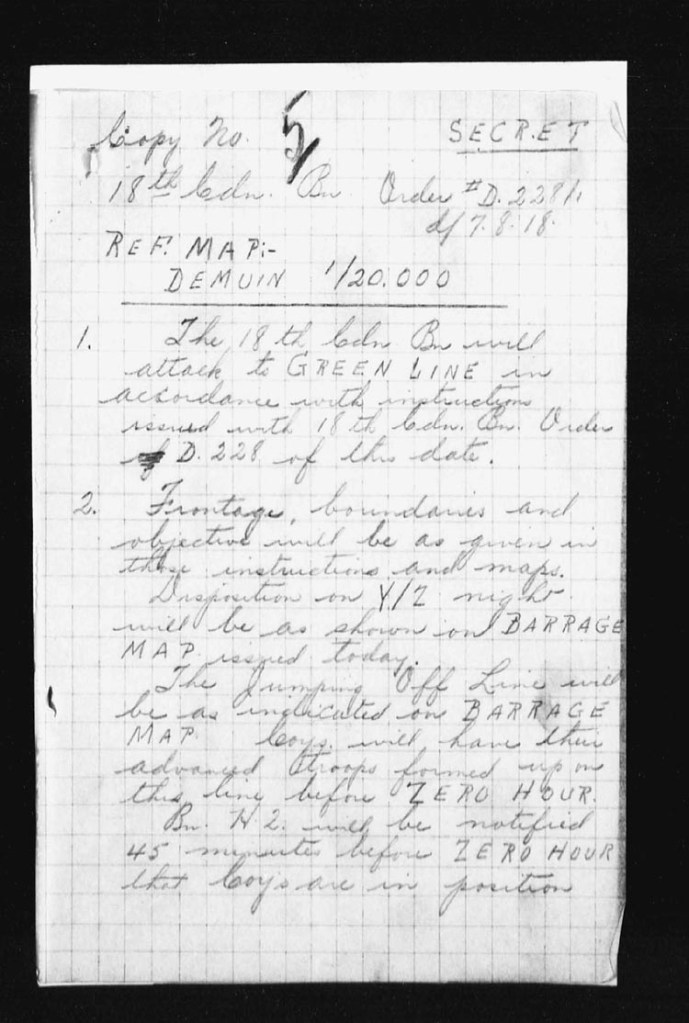 Copy No. 5
SECRET
18th Cdn. Bn Order #D.228/1
d/ 7.8.18.
REF. MAP:-
DEMUIN 1/20.000
1. The 18th Cdn Bn will
attack to GREEN LINE in
accordance with instructions
issued with 18th Cdn. Bn. Order
D.228 of this date.
2. Frontage, boundaries and
objective will be as given in
those instructions and maps.
Disposition on Y/Z night
will be as shown on BARRAGE
MAP issued today.
The Jumping Off Line will
be as indicated on BARRAGE
MAP Coys. will have their
advanced troops formed up on
this line before ZERO HOUR.
Bn. H.Q. will be notified
45 minutes before ZERO HOUR
that Coys are in position